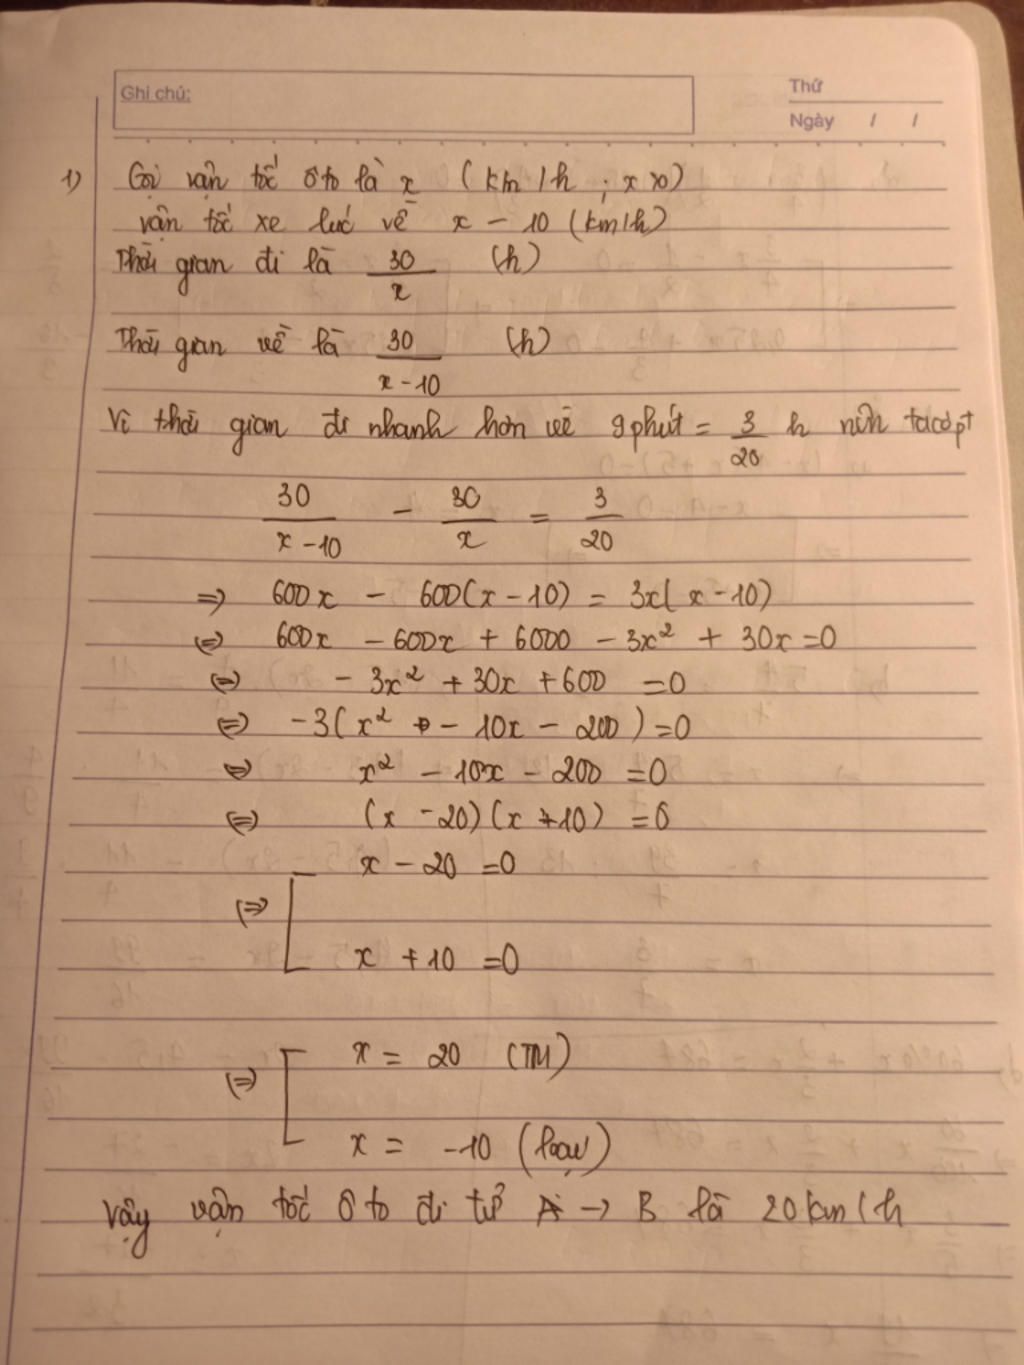 Ghi chú:
Thứ
Ngày / /
1) Gọi vận tốc ôto là x (km/h ; x>0)
vận tốc xe lúc về x - 10 (km/h)
Thời gian đi là 30/x (h)
Thời gian về là 30/(x-10) (h)
Vì thời gian đi nhanh hơn về 9 phút = 3/20 h nên ta có pt
30/(x-10) - 30/x = 3/20
=> 600x - 600(x-10) = 3x(x-10)
<=> 600x - 600x + 6000 - 3x² + 30x = 0
<=> -3x² + 30x + 600 = 0
<=> -3(x² - 10x - 200) = 0
<=> x² - 10x - 200 = 0
<=> (x - 20)(x + 10) = 0
x - 20 = 0
<=> [
x + 10 = 0
x = 20 (TM)
<=> [
x = -10 (loại)
Vậy vận tốc ôto đi từ A -> B là 20 km/h